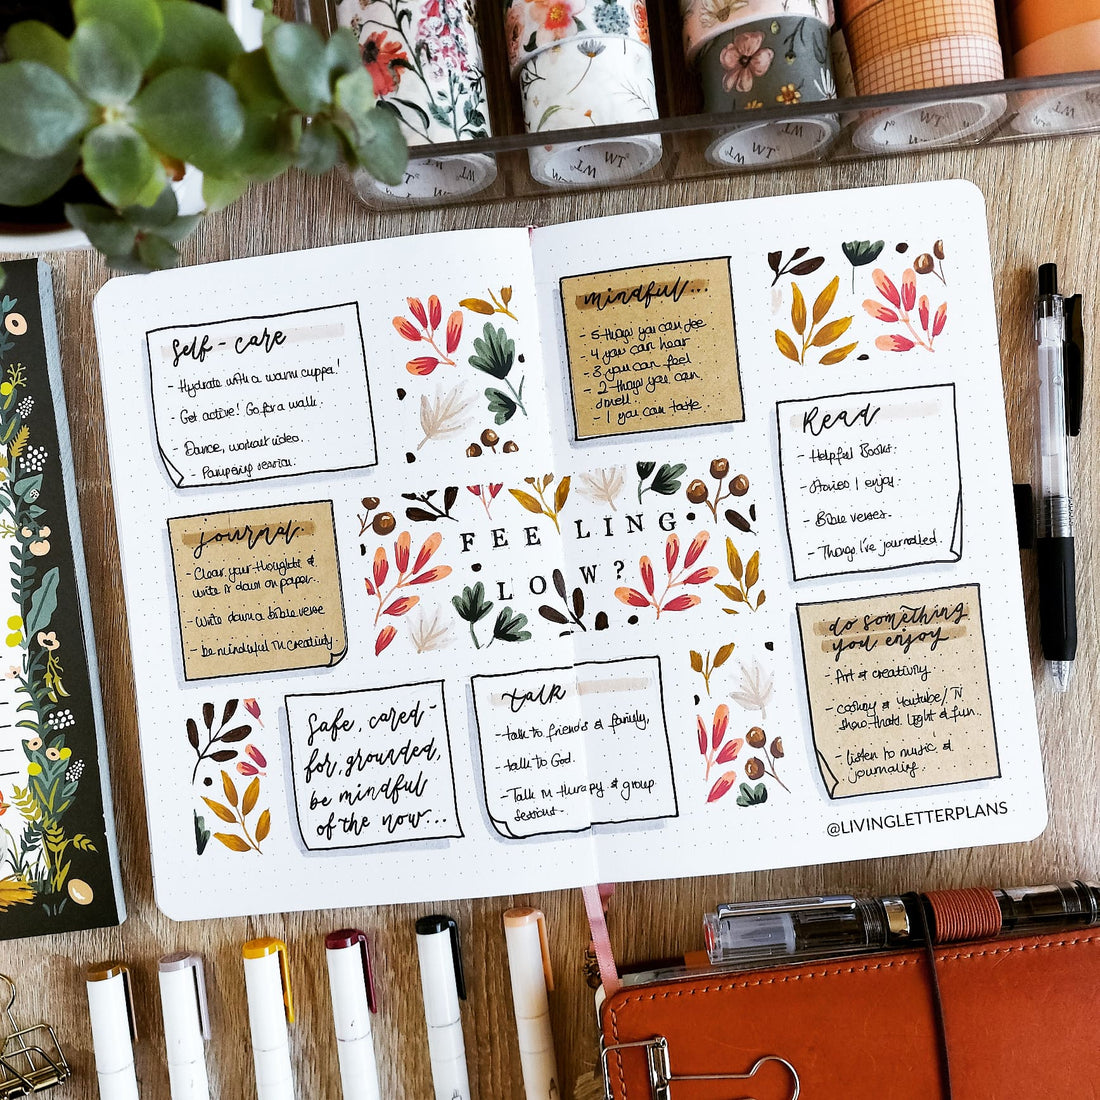 WT
WT
WT
WT
self-care
- Hydrate with a warm cuppa!
- Get active! Go for a walk.
- Dance, workout video.
- Pampering session.
mindful...
- 5 things you can see
- 4 you can hear
- 3 you can feel
- 2 things you can
smell.
- 1 you can taste.
Read
- Helpful Books.
- Stories I enjoy.
- Bible verses.
- Things I've journalled.
journal.
- Clear your thoughts &
write it down on paper.
- Write down a bible verse
- be mindful in creativity
FEELING
LOW?
do something
you enjoy
- Art & creativity
- cooking & Youtube/TV
show thats light & fun.
- listen to music &
journaling.
Safe, cared-
for, grounded,
be mindful
of the now...
talk
- talk to friends & family.
- talk to God.
- Talk in therapy & group
sessions.
@LIVINGLETTERPLANS